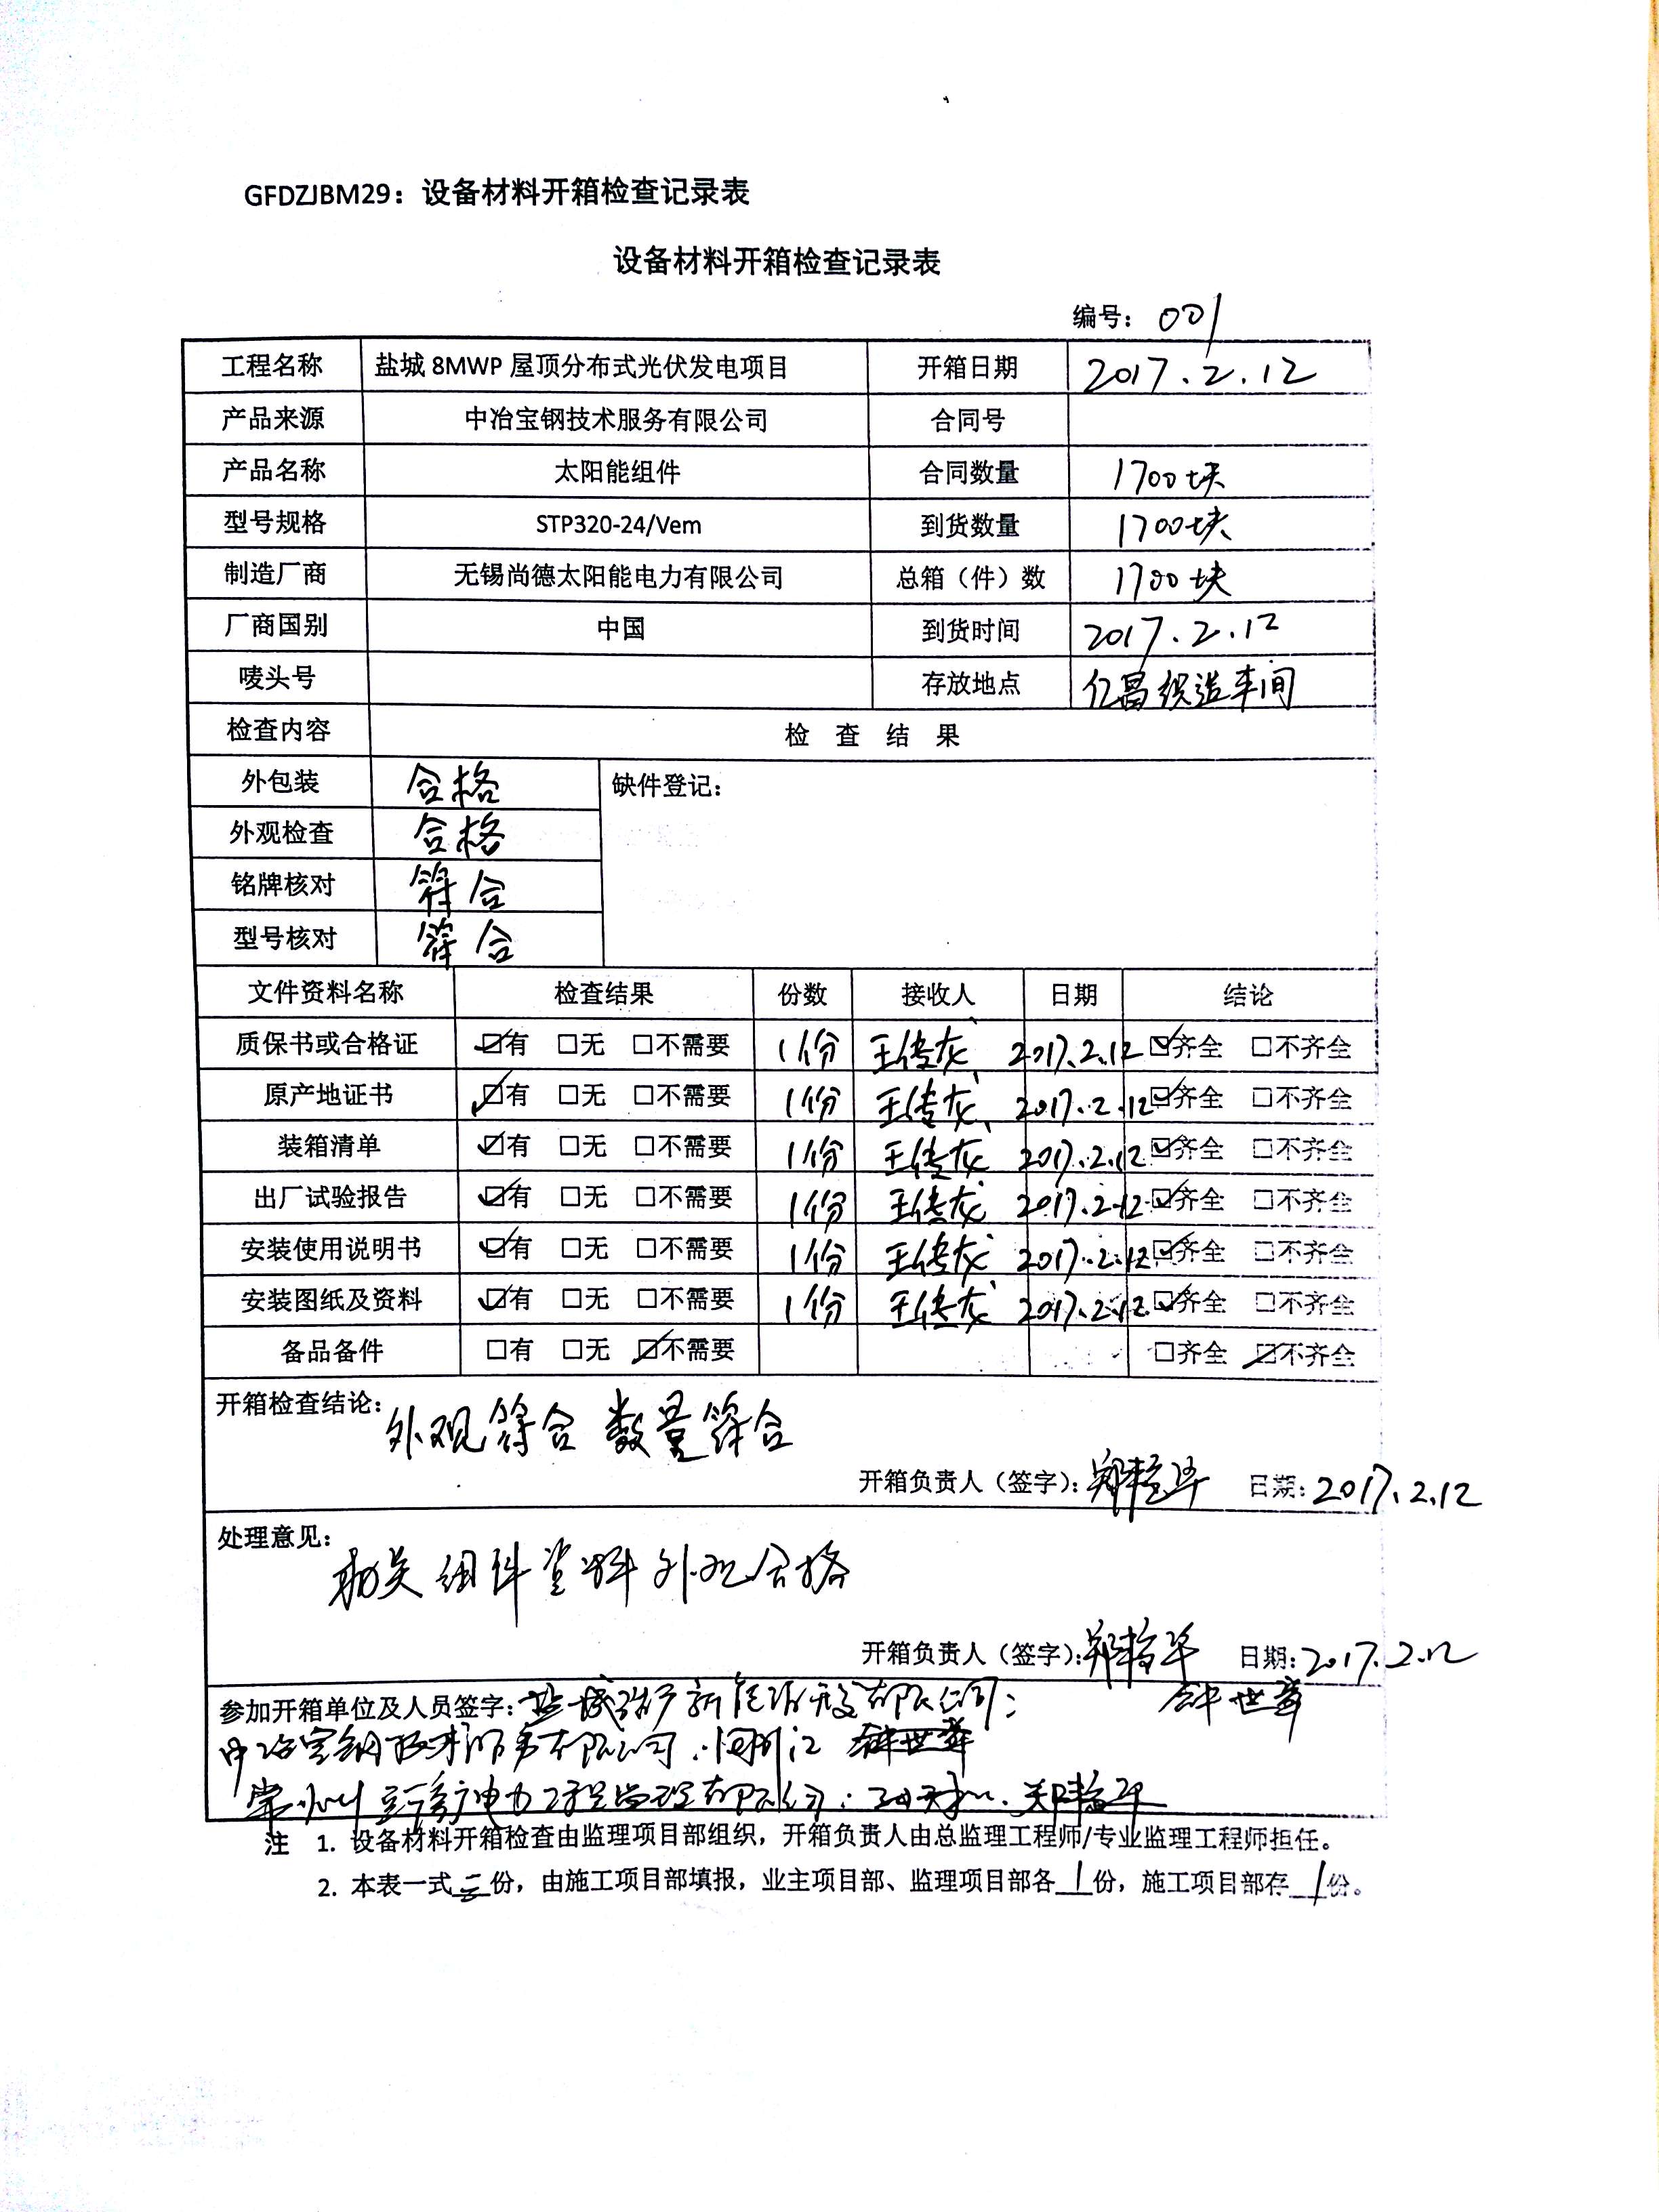 GFDZJBM29：设备材料开箱检查记录表
设备材料开箱检查记录表
编号： 001
工程名称 盐城 8MWP 屋顶分布式光伏发电项目 开箱日期 2017.2.12
产品来源 中冶宝钢技术服务有限公司 合同号
产品名称 太阳能组件 合同数量 1700块
型号规格 STP320-24/Vem 到货数量 1700块
制造厂商 无锡尚德太阳能电力有限公司 总箱（件）数 1700块
厂商国别 中国 到货时间 2017.2.12
唛头号 存放地点 亿昌织造车间
检查内容 检 查 结 果
外包装 合格 缺件登记：
外观检查 合格
铭牌核对 符合
型号核对 符合
文件资料名称 检查结果 份数 接收人 日期 结论
质保书或合格证 ☑有 □无 □不需要 1份 王传龙 2017.2.12 ☑齐全 □不齐全
原产地证书 ☑有 □无 □不需要 1份 王传龙 2017.2.12 ☑齐全 □不齐全
装箱清单 ☑有 □无 □不需要 1份 王传龙 2017.2.12 ☑齐全 □不齐全
出厂试验报告 ☑有 □无 □不需要 1份 王传龙 2017.2.12 ☑齐全 □不齐全
安装使用说明书 ☑有 □无 □不需要 1份 王传龙 2017.2.12 ☑齐全 □不齐全
安装图纸及资料 ☑有 □无 □不需要 1份 王传龙 2017.2.12 ☑齐全 □不齐全
备品备件 □有 □无 ☑不需要 □齐全 ☑不齐全
开箱检查结论： 外观符合 数量符合
开箱负责人（签字）： 日期：2017.2.12
处理意见：
相关组件资料外观合格
开箱负责人（签字）： 日期：2017.2.12
参加开箱单位及人员签字：盐城 新能源 有限公司：
中冶宝钢技术服务有限公司
常州 电力工程监理有限公司：
注 1. 设备材料开箱检查由监理项目部组织，开箱负责人由总监理工程师/专业监理工程师担任。
2. 本表一式三份，由施工项目部填报，业主项目部、监理项目部各1份，施工项目部存1份。